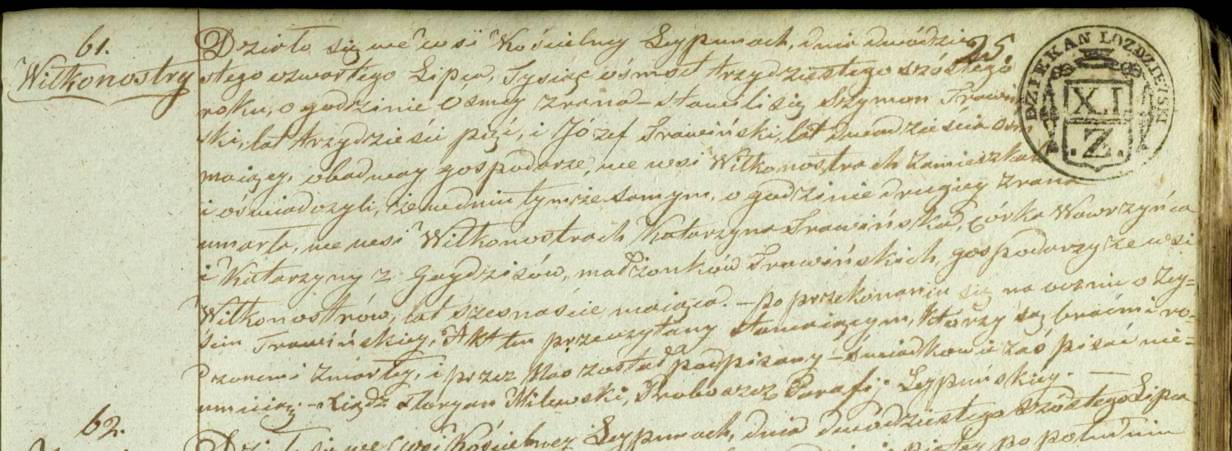 61.
Wiłkonostry
25.
DZIEKAN ŁOZDZIEYSKI
X.I
.Z.
Działo się we wsi Kościelney Leypunach, dnia dwódzie-
stego czwartego Lipca, Tysiąc ośmset trzydziestego szóstego
roku, o godzinie Ósmey zrana – stawili się Szymon Trawiń-
ski, lat trzydzieści pięć, i Józef Trawiński, lat dwadzieścia
maiący, obadway gospodarze, we wsi Wiłkonostrach zamieszkali
i oświadczyli, że w dniu tymże samym, o godzinie drugiey zrana
umarła, we wsi Wiłkonostrach Katarzyna Trawińska, córka Wawrzyńca
i Katarzyny z Gaydzisów, małżonków Trawińskich, gospodarzy ze wsi
Wiłkonostrów, lat szesnaście maiąca. – po przekonaniu się na ocznie o zey-
ściu Trawińskiey, Akt ten przeczytany stawaiącym, którzy są braćmi ro-
dzonemi zmarłey, i przez Nas został podpisany – Świadkowie zaś pisać nie-
umieią. – Xiądz Floryan Milewski, Proboszcz Parafij Leypuńskiey. –
62.
Działo się we wsi Kościelney Leypunach, dnia dwódziestego szóstego Lipca
po południu